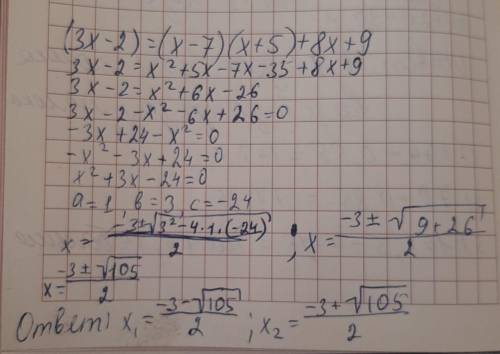 (3x-2)=(x-7)(x+5)+8x+9
3x-2=x²+5x-7x-35+8x+9
3x-2=x²+6x-26
3x-2-x²-6x+26=0
-3x+24-x²=0
-x²-3x+24=0
x²+3x-24=0
a=1, b=3, c=-24
x=(-3±√(3²-4·1·(-24)))/2 ; x=(-3±√(9+26))/2
x=(-3±√105)/2
Ответ: x₁=(-3-√105)/2 ; x₂=(-3+√105)/2